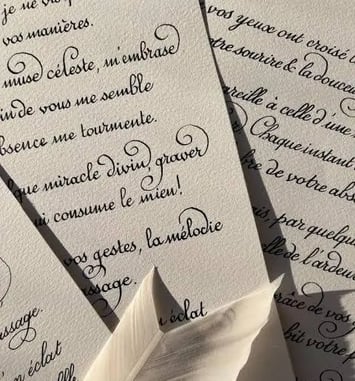 je ne
vos manières.
muse céleste, m'embrase
de vous me semble
absence me tourmente.
que miracle divin, graver
qui consume le mien!
vos gestes, la mélodie
ssage.
éclat
vos yeux ont croisé
otre sourire & la douceur
pareille à celle d'une
Chaque instant
de votre abs
is, par quelque
elle de l'ardeur
râce de vos
bit votre
ssage.
n éclat